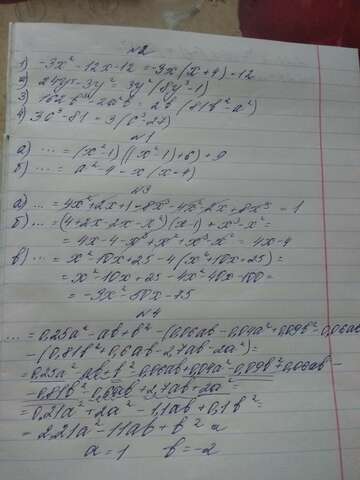 №2
1) -3x²-12x-12 = -3x(x+4)-12
2) 24y⁵-3y² = 3y²(8y³-1)
3) 162b³-2a²b = 2b(81b²-a²)
4) 3c³-81 = 3(c³-27)
№1
а) ... = (x²-1)((x²-1)+6)+9
б) ... = a²-9-x(x-4)
№3
а) ... = 4x²+2x+1+8x³-4x²-2x+8x³-1
б) ... = (4+2x-2x-x²)(x-1)+x³-x²=
= 4x-4-x³+x²+x³-x²= 4x-4
в) ... = x²-10x+25-4(x²+10x+25)=
= x²-10x+25-4x²-40x-100=
= -3x²-50x-75
№4
... = 0,25a²-ab+b²-(0,06ab-0,04a²+0,09b²-0,06ab
-(0,81b²+0,6ab-2,7ab-2a²)=
=0,25a²-ab+b²-0,06ab+0,04a²-0,09b²+0,06ab-
-0,81b²-0,6ab+2,7ab+2a²=
=0,21a²+2a²-1,1ab+0,1b²=
=2,21a²-1,1ab+b²
a=1 b=-2